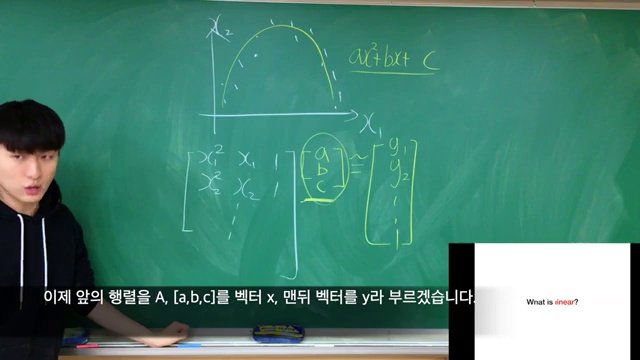 x₂
ax²+bx+c
x₁
x₁² x₁ 1
x₂² x₂ 1
a
b
c
≃
y₁
y₂
이제 앞의 행렬을 A, [a,b,c]를 벡터 x, 맨뒤 벡터를 y라 부르겠습니다.
What is linear?